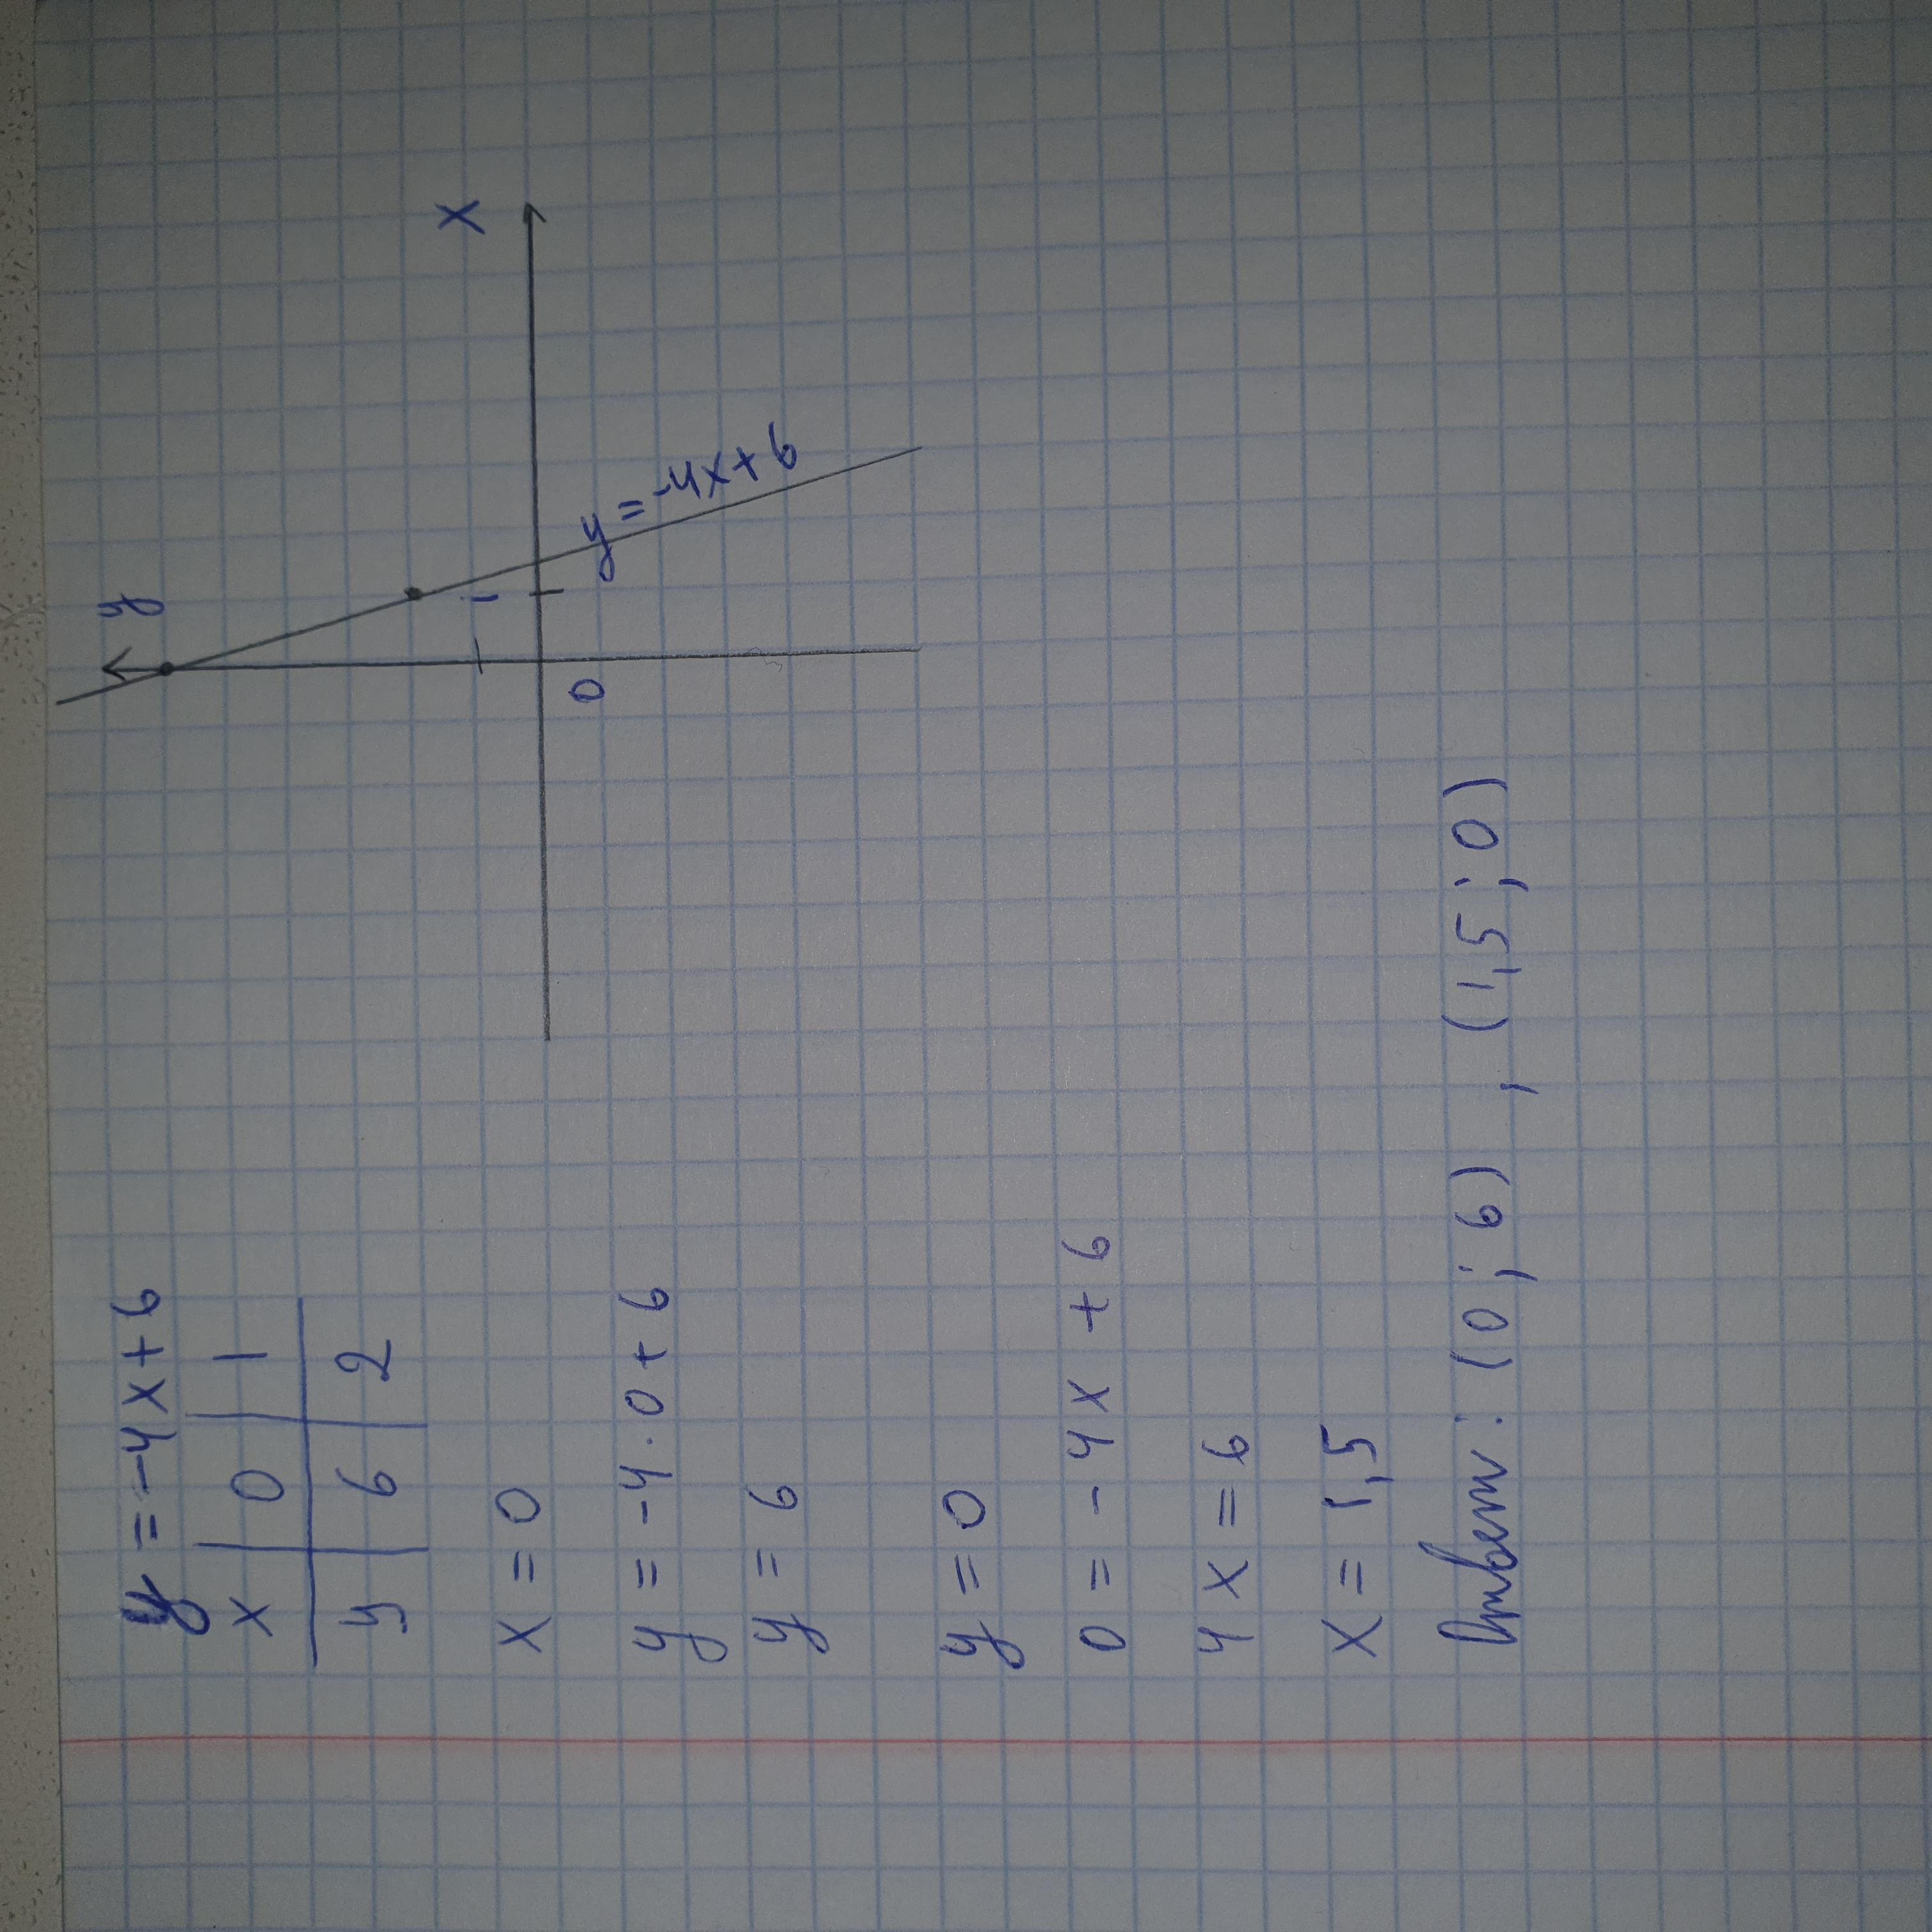 y = -4x+6
x 0 1
y 6 2
x = 0
y = -4·0+6
y = 6
y = 0
0 = -4x +6
4x = 6
x = 1,5
Ответ: (0;6) , (1,5;0)
y
x
1
0
y = -4x+6